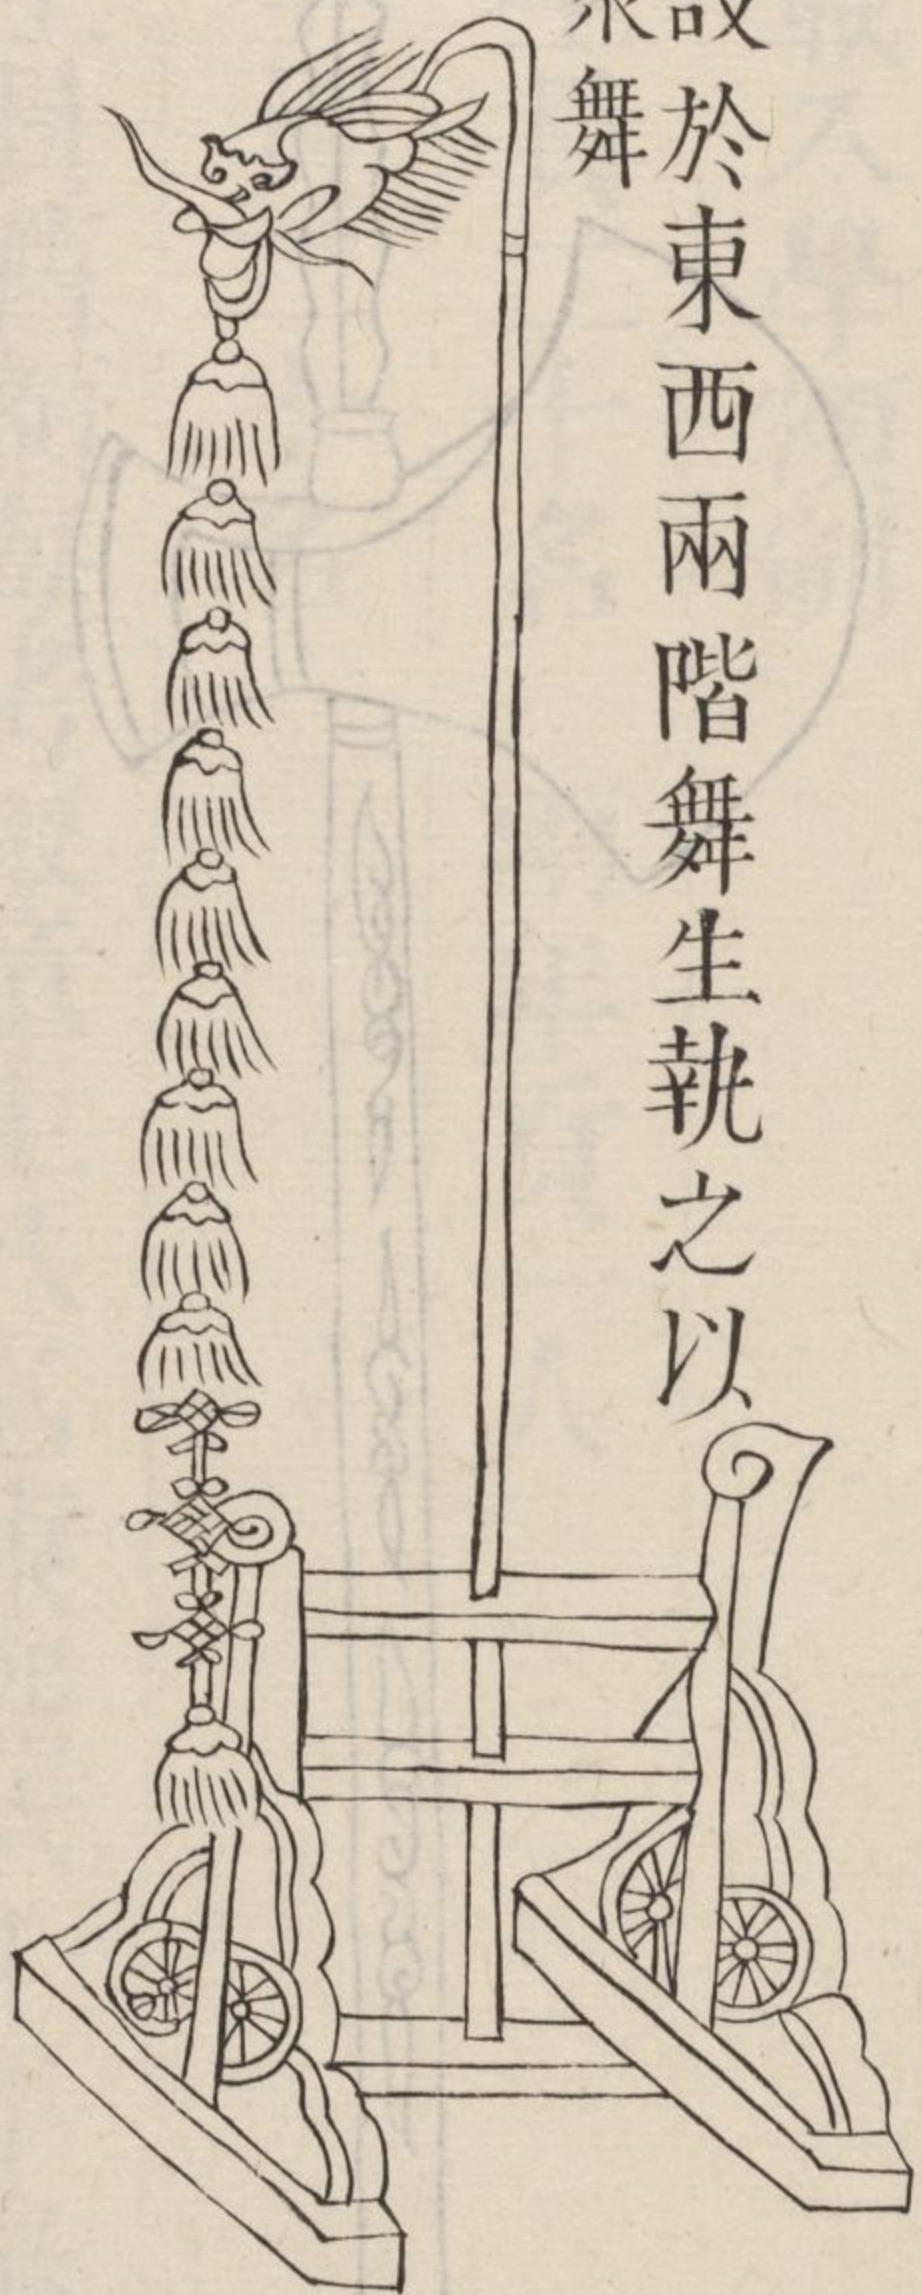 設於東西兩階舞生執之以
舞